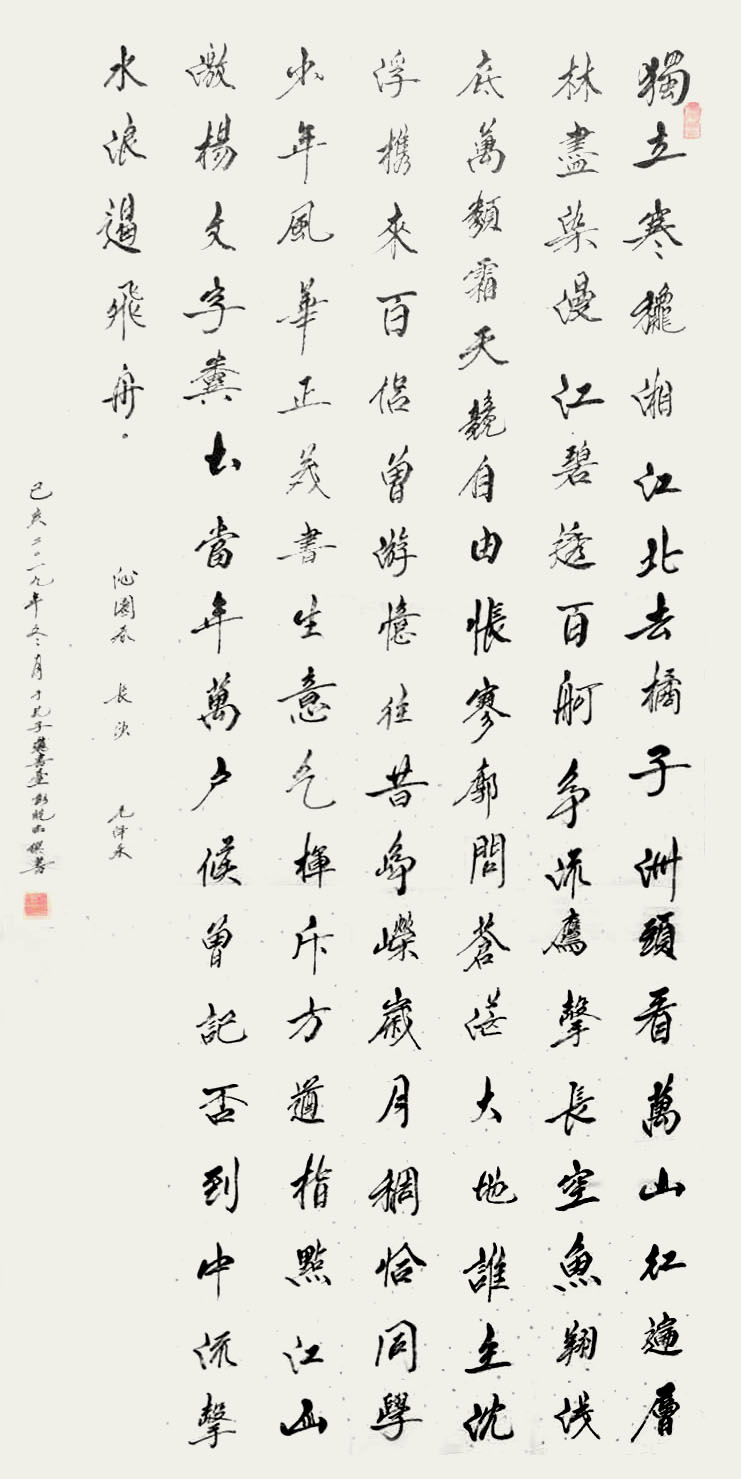 獨立寒穐湘江北去橘子洲頭看萬山紅遍層
林盡染漫江碧透百舸争流鷹擊長空魚翔淺
底萬類霜天競自由悵寥廓問蒼茫大地誰主沈
浮携來百侣曾游憶往昔崢嶸歲月稠恰同學
少年風華正茂書生意气揮斥方遒指點江山
激揚文字糞土當年萬户侯曾記否到中流擊
水浪遏飛舟。
沁園春 長沙 毛泽东
己亥二〇一九年冬月于孔子書臺書